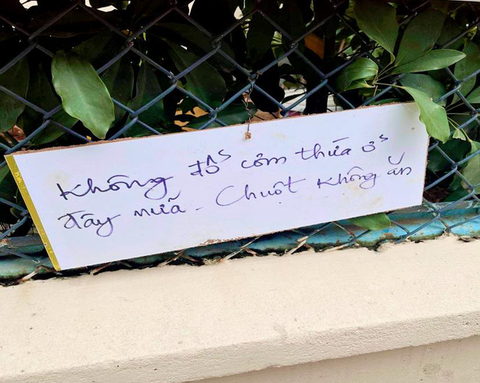 Không đổ cơm thừa ở
đây nữa. Chuột không ăn